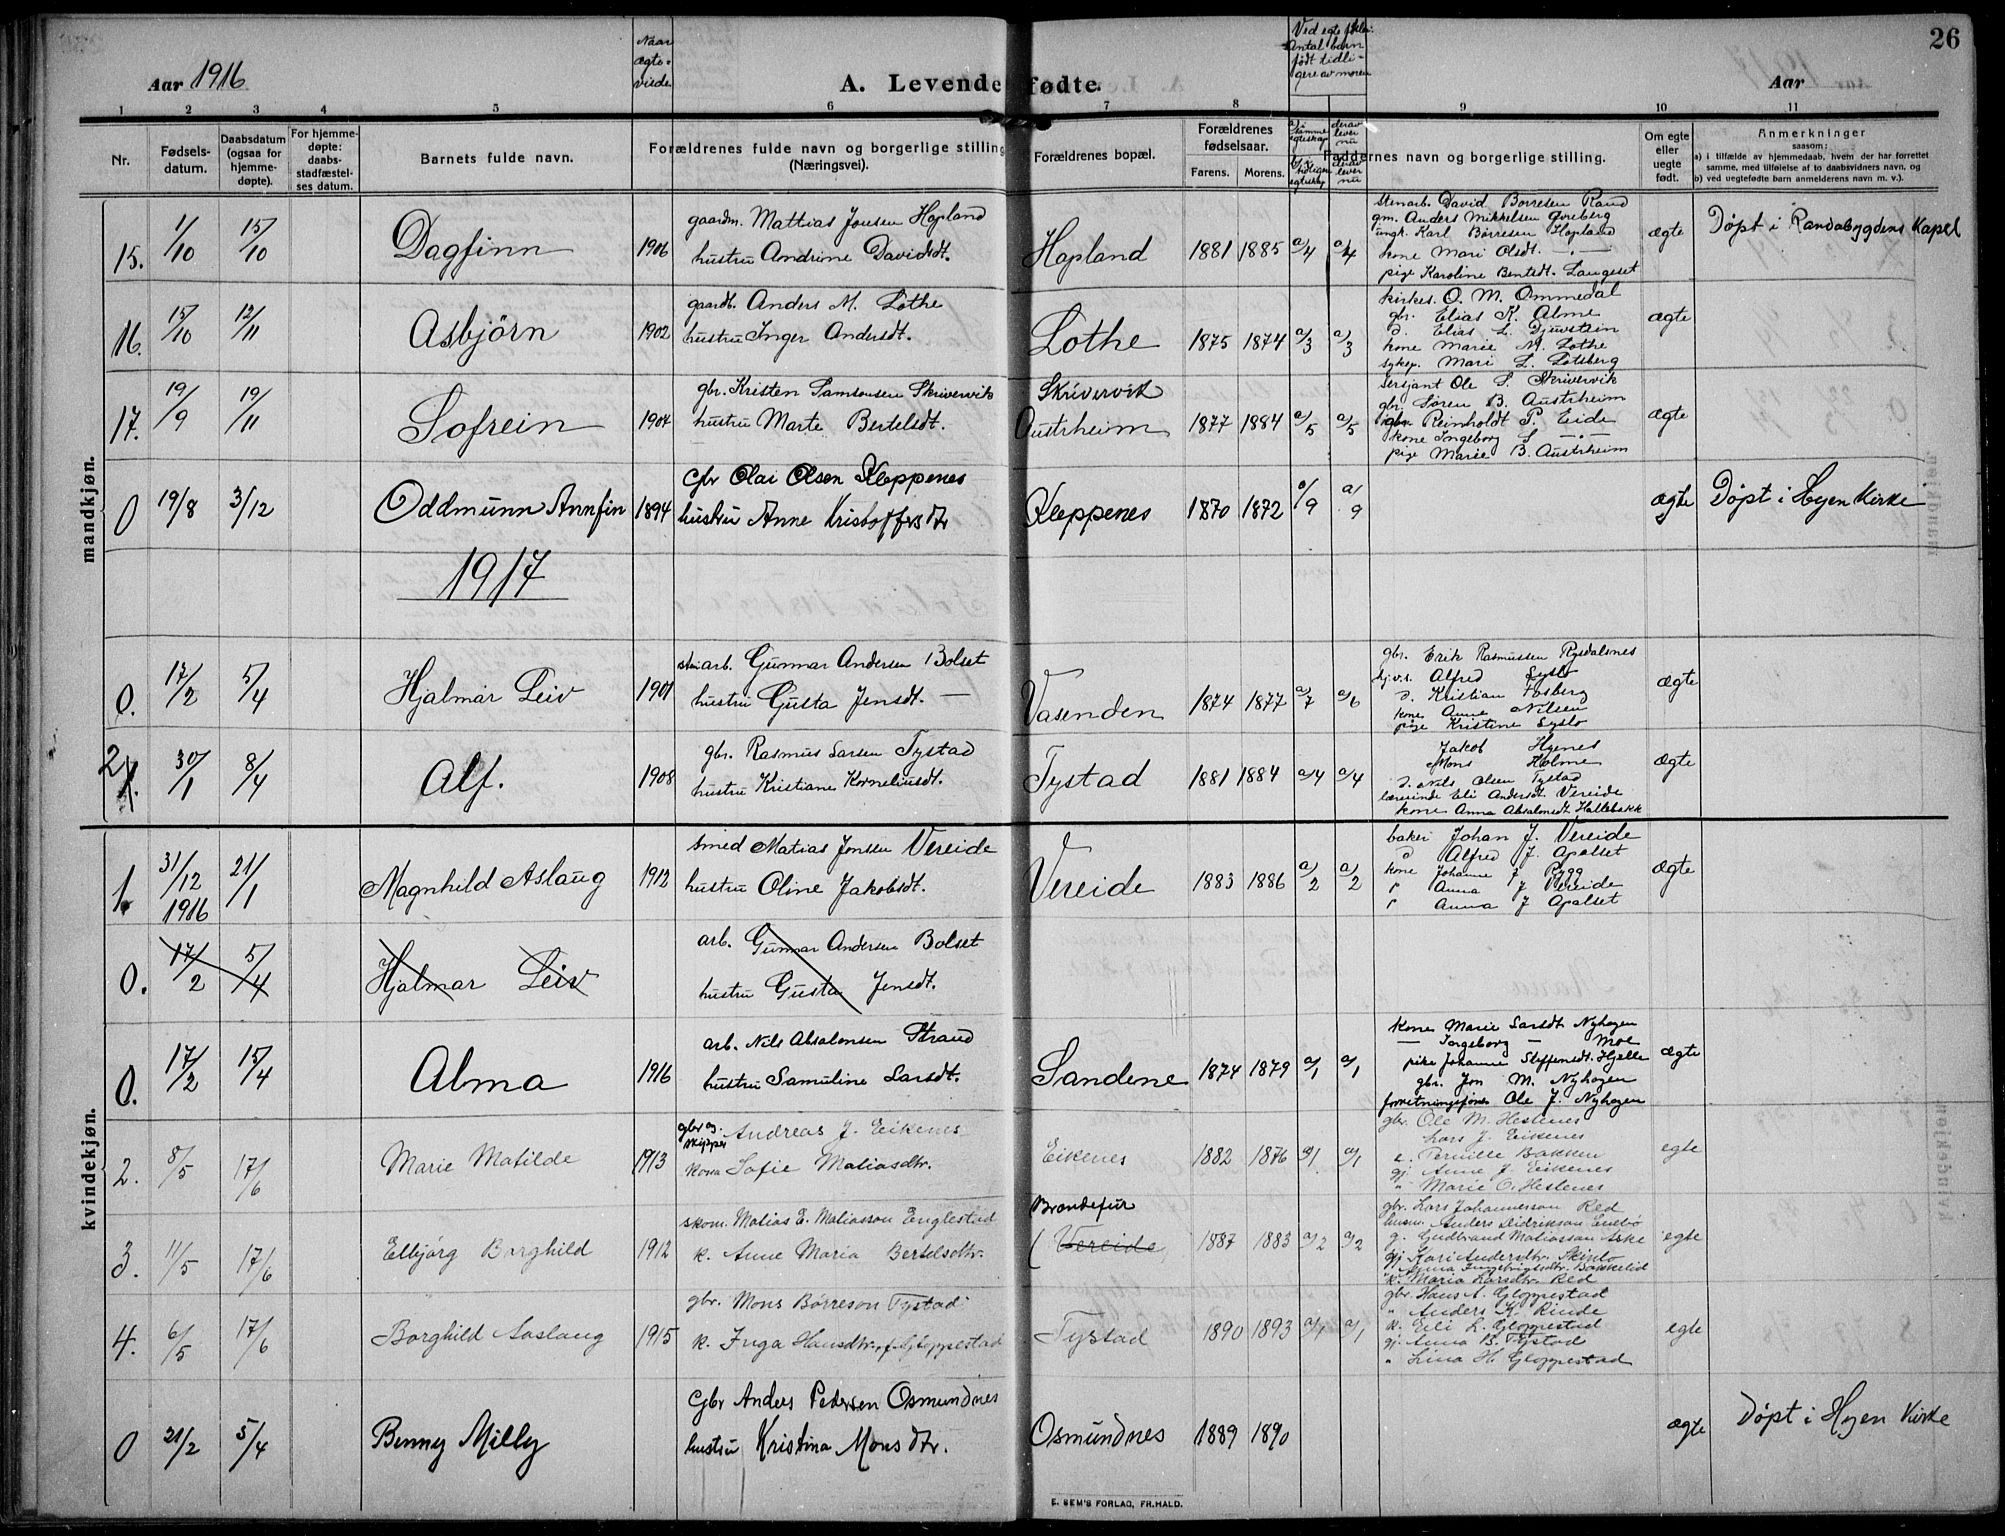 26
Aar 1916
Naar ægteviede
A. Levendefødte.
Ved egte fødsler: Antal barn født tidligere av moren
Aar
1 2 3 4 5 6 7 8 9 10 11
Nr.
Fødselsdatum.
Daabsdatum (ogsaa for hjemmedøpte).
For hjemmedøpte: daabsstadfæstelses datum.
Barnets fulde navn.
Forældrenes fulde navn og borgerlige stilling (Næringsvei).
Forældrenes bopæl.
Forældrenes fødselsaar.
Farens. Morens.
Faddernes navn og borgerlige stilling.
Om egte eller uegte født.
Anmerkninger
saasom:
a) i tilfælde av hjemmedaab, hvem der har forrettet samme, med tilføielse af to daabsvidners navn, og
b) ved uegtefødte barn anmelderens navn m. v.).
mandkjøn.
15. 1/10 15/10 Dagfinn 1906
gaardm. Mattias Jonsen Hopland
hustru Andrine Davidsdt.
Hopland 1881 1885 a/4 a/4
Stenarb. David Børresen Rand
gm. Anders Mikkelsen Øvreberg
ungk. Karl Børresen Hopland
kone Mari Olsdt. — " —
pige Karoline Bentsdt. Langeset
ægte Døpt i Randabygdens Kapel
16. 15/10 12/11 Asbjörn 1902
gaardb. Anders M. Lothe
hustru Inger Andersdt.
Lothe 1875 1874 a/3 a/3
kirkes. O. M. Ommedal
gbr. Elias K. Alme
d. Elias L. Djuvstein
kone Marie M. Lothe
sykep. Mari L. Lotsberg
ægte
17. 19/9 19/11 Sofrein 1904
gbr. Kristen Samsonsen Skrivervik
hustru Marte Bertelsdt.
Skrivervik
Austrheim 1877 1884 a/5 a/5
Sersjant Ole S. Skrivervik
gbr. Søren B. Austrheim
gbr. Reinholdt P. Eide
kone Ingeborg S — " —
pige Marie B. Austrheim
ægte
0 19/8 3/12 Oddmunn Annfin 1894
Gbr Olai Olsen Kleppenes
hustru Anne Kristoffersdtr
Kleppenes 1870 1872 a/9 a/9
ægte Døpt i Hyen Kirke
1917
0. 17/2 5/4 Hjalmar Leiv 1901
stenarb. Gunnar Andersen Bolset
hustru Gusta Jensdt. —
Vasenden 1874 1877 a/7 a/6
gbr. Erik Rasmussen Rysdalsnes
Alfred Syslo
d. Kristian Fosberg
kone Anne Nilsen
pige Kristine Syslo
ægte
2. 30/1 8/4 Alf. 1908
gbr. Rasmus Larsen Tystad
hustru Kristiane Korneliusdt.
Tystad 1881 1884 a/4 a/4
Jakob Hjenes
Mons Holme
d. Nils Olsen Tystad
lærerinde Eli Andersdt. Vereide
kone Anna Absalonsdt. Hallebakk
ægte
kvindekjøn.
1. 31/12 1916 21/1 Magnhild Aslaug 1912
smed Matias Jonsen Vereide
hustru Oline Jakobsdt.
Vereide 1883 1886 a/2 a/2
baker Johan J. Vereide
d Alfred J. Apalset
kone Johanne J Rygg
" Anna J Vereide
" Anna J Apalset
ægte
0. 17/2 5/4 Hjalmar Leiv
arb. Gunnar Andersen Bolset
hustru Gusta Jensdt.
0. 17/2 15/4 Alma 1916
arb. Nils Absalonsen Strand
hustru Samuline Larsdt.
Sandene 1874 1879 a/1 a/1
kone Marie Larsdt. Nyhagen
— Ingeborg — Moe
pike Johanne Steffensdt. Hjelle
gbr. Jon M. Nyhagen
Ole J. Nyhagen
ægte
2. 8/5 17/6 Marie Matilde 1913
gbr og skipper Andreas J. Eikenes
kona Sofie Matiasdtr.
Eikenes 1882 1876 a/1 a/1
gbr. Ole M. Hestenes
Lars J. Eikenes
e. Pernille Bakken
gj. Anne J. Eikenes
" Marie O. Hestenes
egte
3. 11/5 17/6 Elbjørg Borghild 1912
skom. Matias E. Matiasson Englestad
k. Anne Maria Bertelsdtr.
Brandefur
Vereide 1887 1883 a/2 a/2
gbr. Lars Johannesson Red
husm. Anders Didrikson Enebø
g. Gudbrand Matiasson Aske
gj. Kari Andersdtr. Skinlo
" Anna Ingebrigtsdtr. Bakkelid
k. Maria Larsdtr. Red
egte
4. 6/5 17/6 Borghild Aaslaug 1915
gbr. Mons Børreson Tystad
k. Inga Hansdtr. f. Gloppestad
Tystad 1890 1893 a/1 a/1
gbr. Hans A. Gloppestad
" Anders K. Rinde
k. Eli L. Gloppestad
gj. Anna B. Tystad
" Lina H. Gloppestad
egte
0 21/2 5/4 Benny Milly
Gbr Anders Pedersen Osmundnes
hustru Kristina Monsdtr.
Osmundnes 1889 1890
ægte Døpt i Hyen Kirke
E. SEM'S FORLAG, FR.HALD.